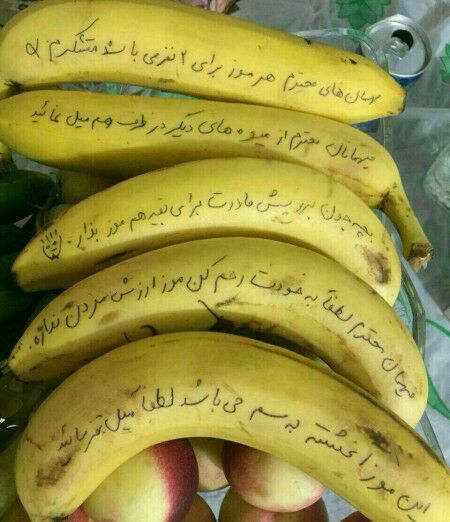 مهمان های محترم هر موز برای ۲ نفر می باشد متشکرم
میهمانان محترم از میوه های دیگر در ظرف هم میل نمائید
بچه جون برو پیش مادرت برای بقیه هم موز بذار
میهمان محترم لطفاً به خودت رحم کن موز ارزش مردن نداره.
این موز آغشته به سم می باشد لطفاً میل نفرمائید